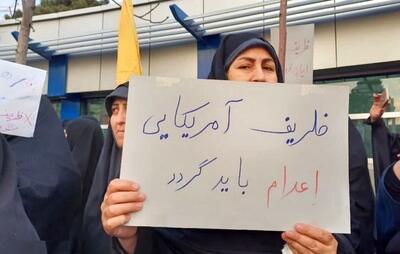 ظریف آمریکایی
اعدام باید گردد
ظریف